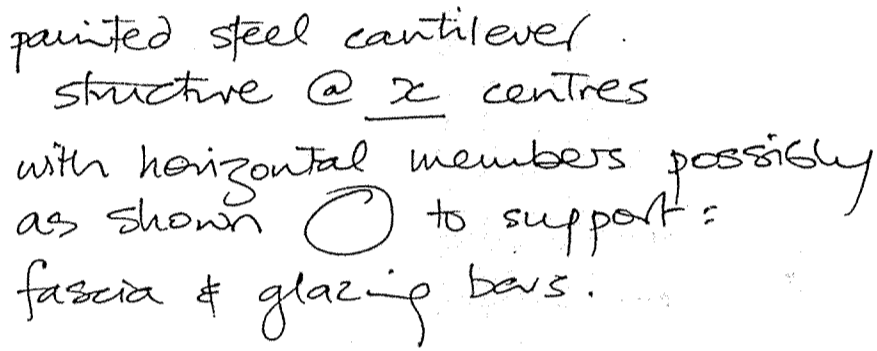 painted steel cantilever.
structure @ x centres
with horizontal members possibly
as shown to support:
fascia & glazing bars.